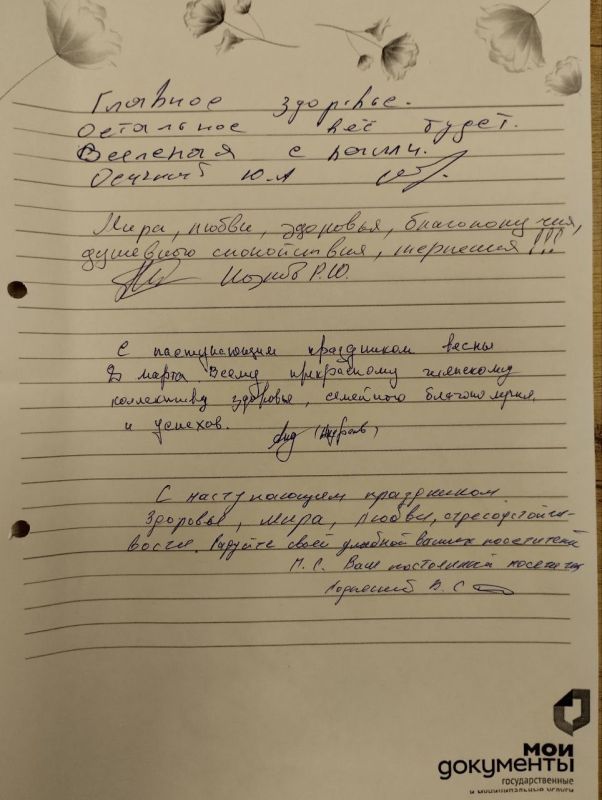 Главное здоровье.
Остальное всё будет.
Вселеная с вами.
Ю.А
Мира, любви, здоровья, благополучия,
душевного спокойствия, терпения!!!
Р.Ю.
С наступающим праздником весны
8 марта Всему прекрасному женскому
коллективу здоровья, семейного благополучия,
и успехов.
С наступающим праздником.
Здоровья, мира, любви, стресоустойчи-
вости. Радуйте своей улыбкой Ваших посетителей
П.С. Ваш постоянный посетитель
В. С
мои
документы
государственные
и муниципальные услуги